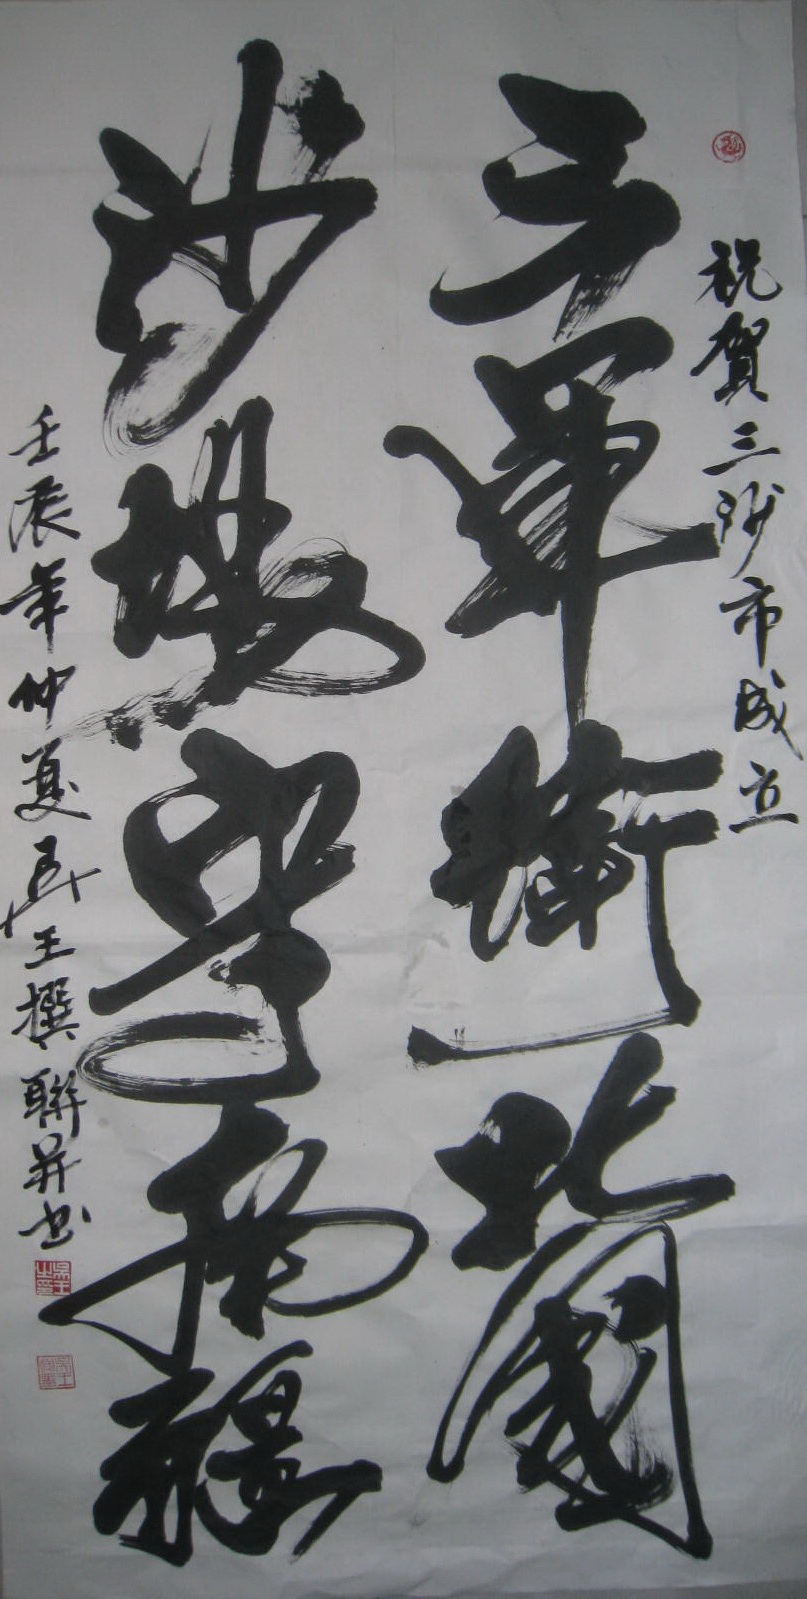 祝賀三沙市成立
三軍衛北國
沙場守南疆
壬辰年仲夏吳王撰聯并书